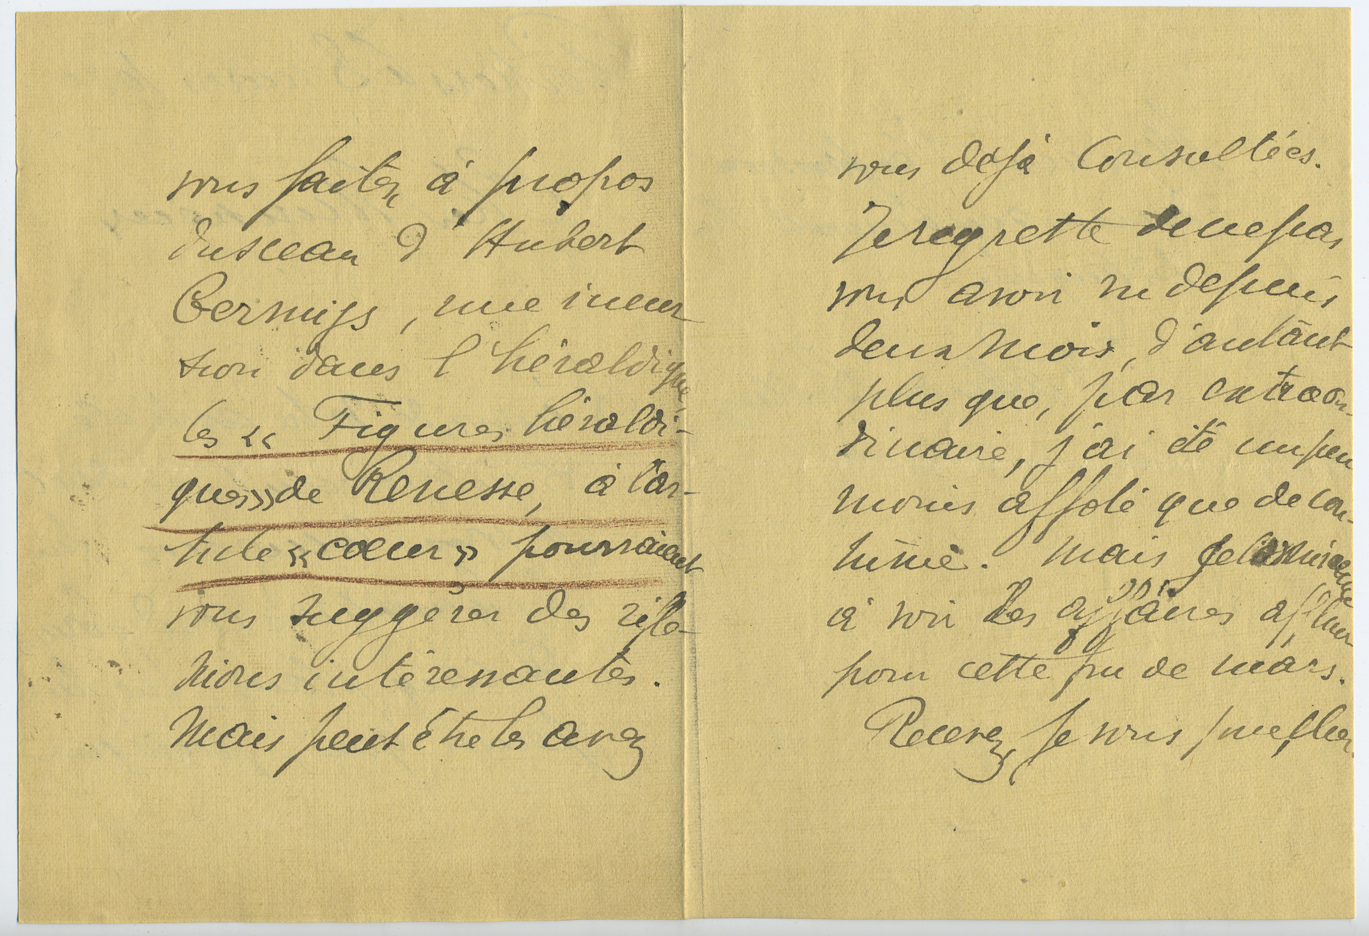 vous faites, à propos
du sceau d'Hubert
, une incur
sion dans l'héraldique,
les « Figures héraldi-
ques » de Renesse, à l'ar-
ticle « cœur » pourraient
vous suggérer des réfle-
xions intéressantes.
Mais peut être les avez
vous déjà consultées.
Je regrette de ne pas
vous avoir vu depuis
deux mois, d'autant
plus que, par extraor-
dinaire, j'ai été un peu
moins affolé que de cou-
tume. Mais je
à voir les affaires affluer
pour cette fin de mars.
Recevez, je vous prie, cher